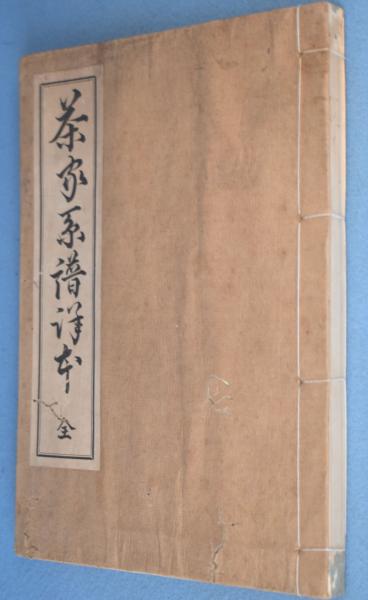 茶家系譜詳本 全